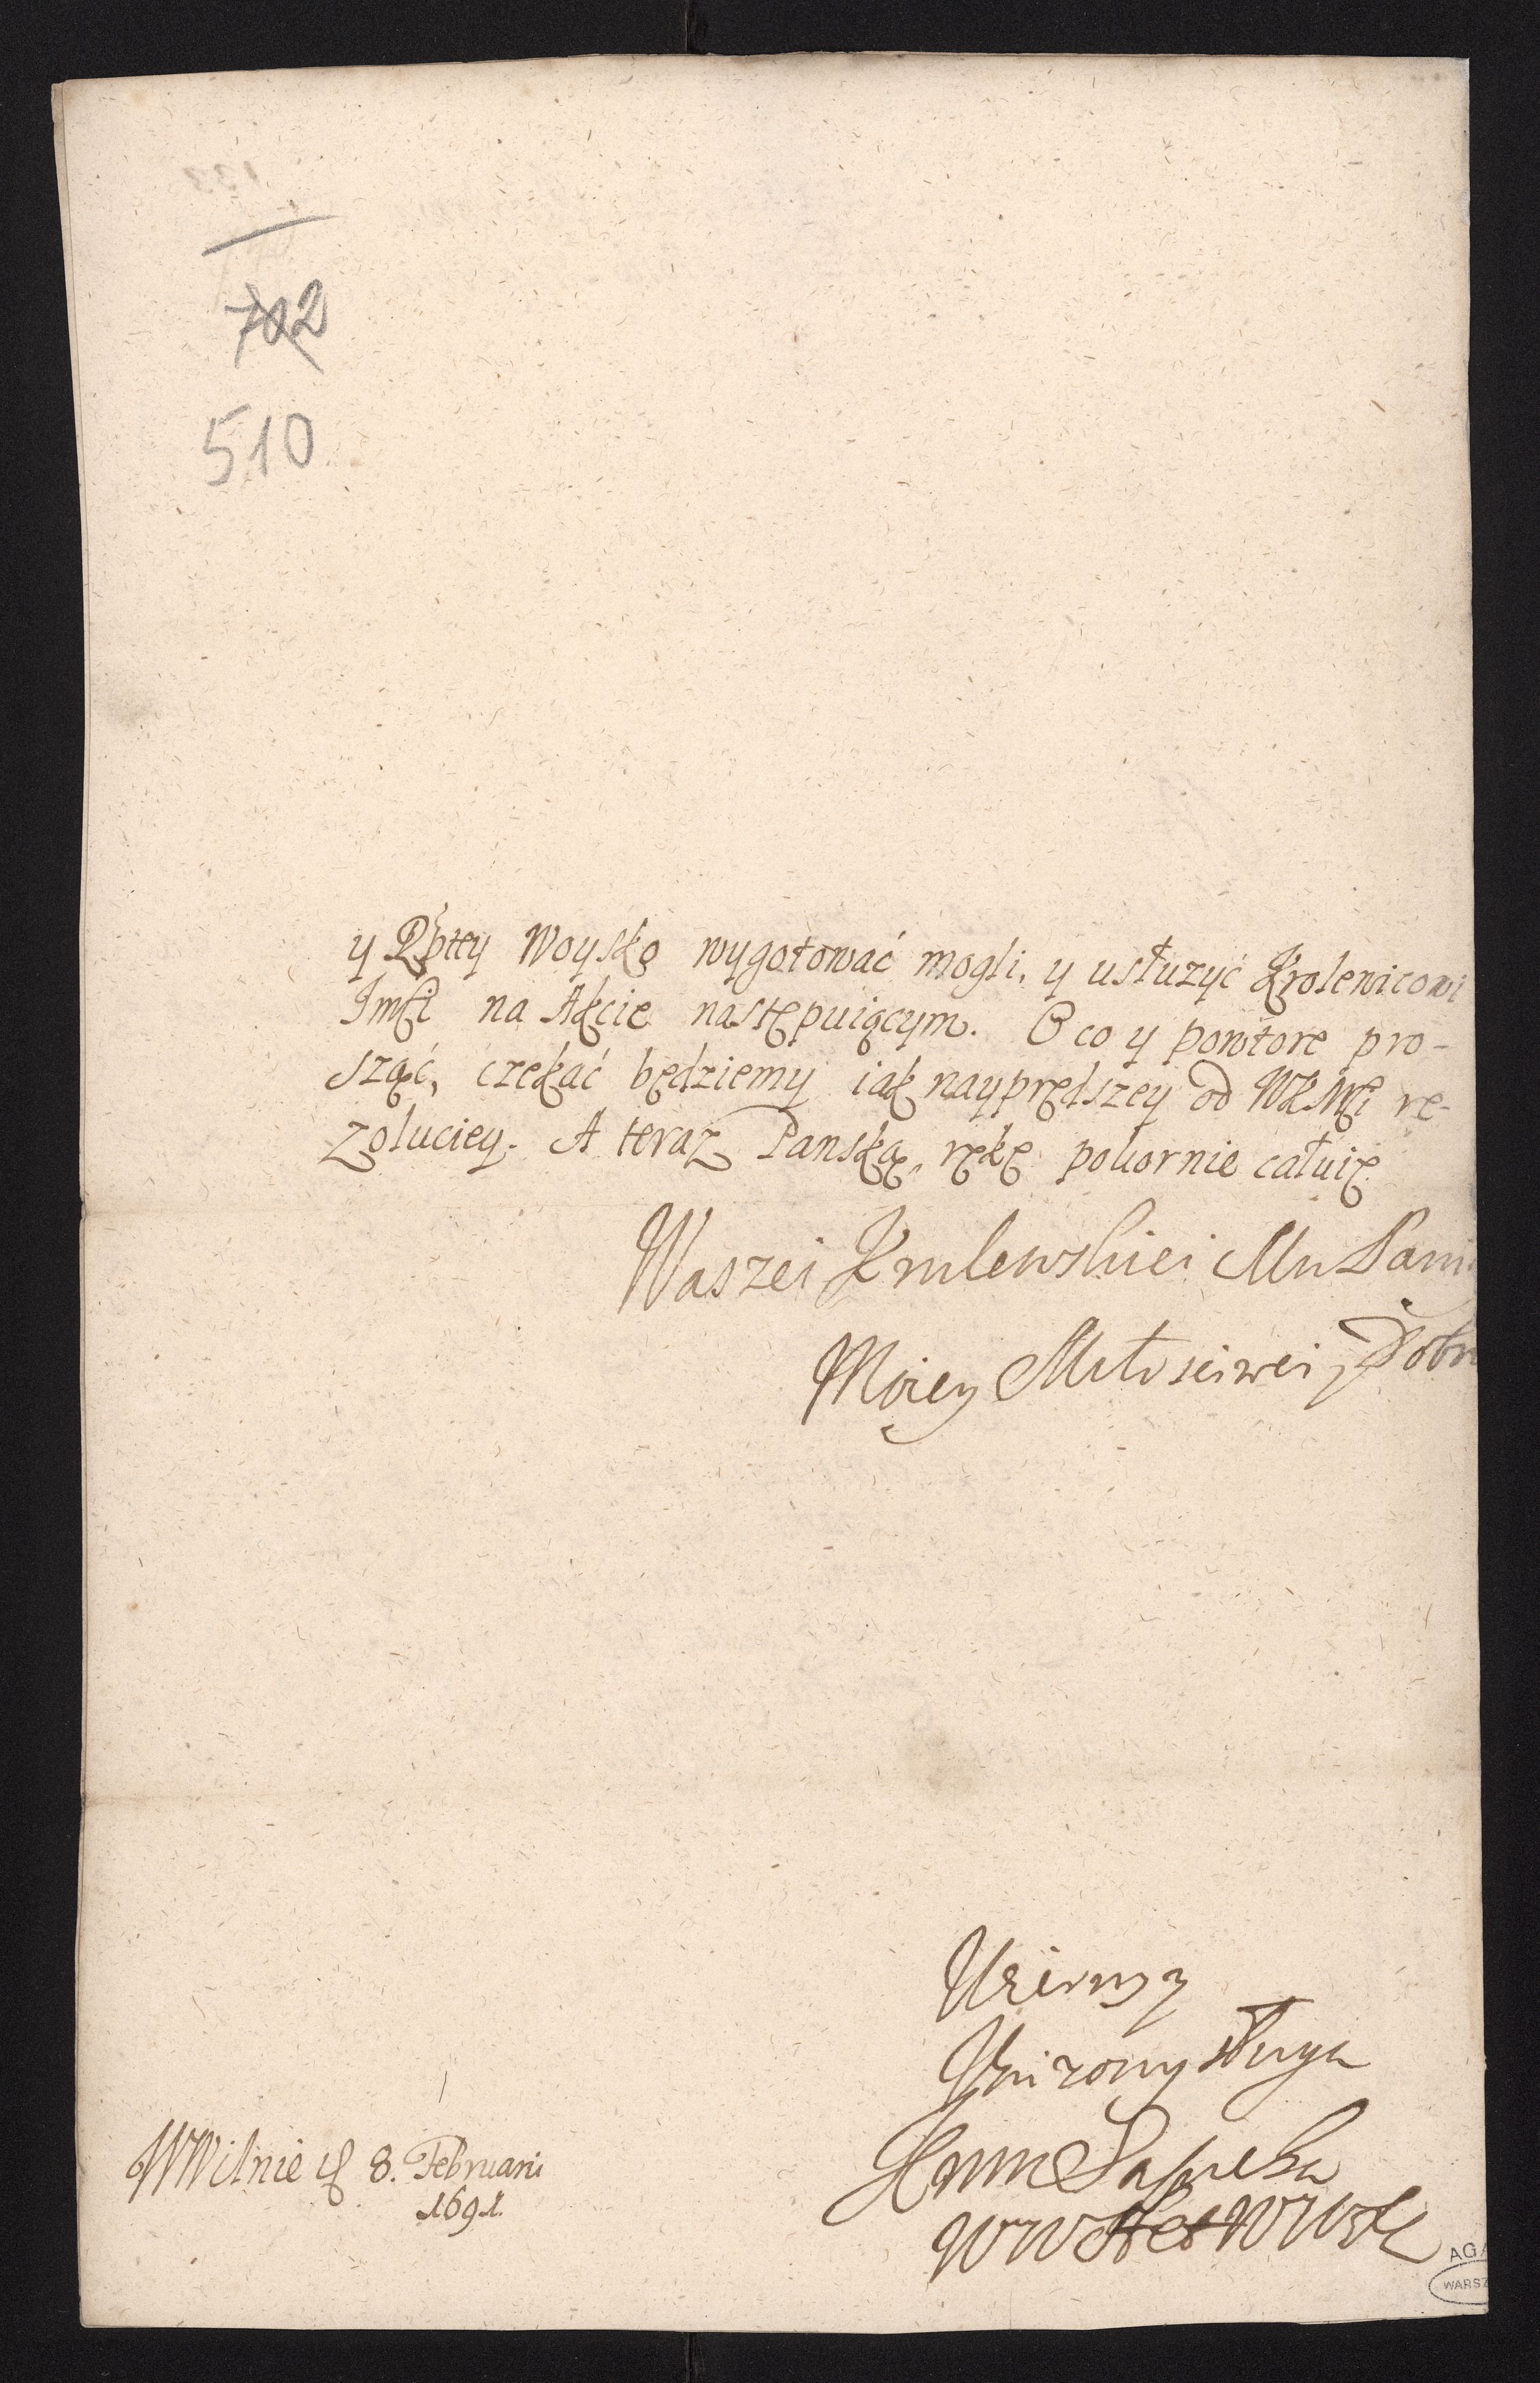 702
510
y Rzptey Woysko wygotować mogli, y usłużyć Krolewicowi
Jmći na Akcie następuiącym. O co y powtore pro-
sząć, czekać będziemy iak nayprędszey od WKMći re-
zoluciey. A teraz Panską, rękę pokornie całuię
Waszei Krulewskiei Mu Pani
Moiey Miłosciwei Dobr
Uniżony sługa
Sapieha
WW Het WWXL
WWilnie d 8. Februarii
1691.
AGA
WARSZ